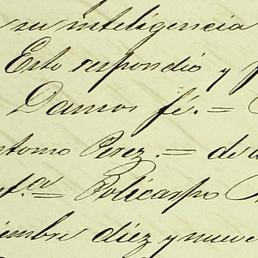 su inteligencia
Esto respondió y f
Damos fé.=
ntonio Perez.= de
fª= Policarpo
iembre diez y nueve